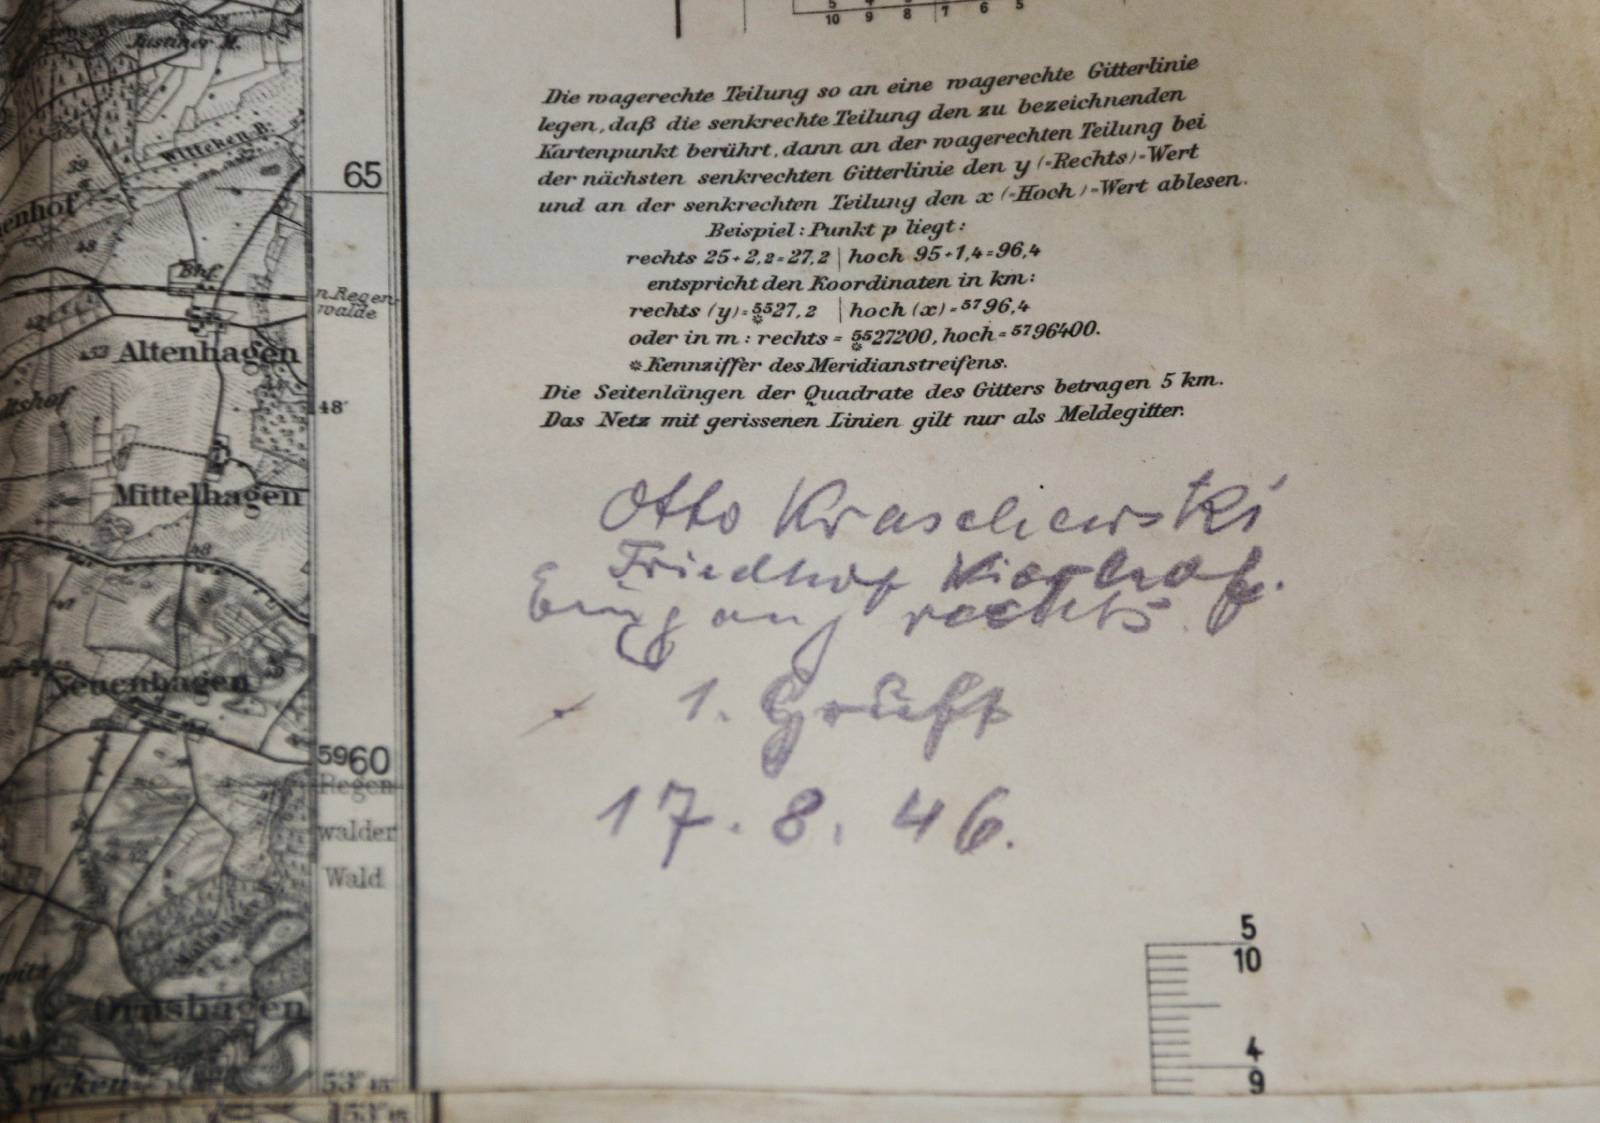 10 9 8 7 6 5
Justiner M.
Die wagerechte Teilung so an eine wagerechte Gitterlinie
legen, daß die senkrechte Teilung den zu bezeichnenden
Kartenpunkt berührt, dann an der wagerechten Teilung bei
der nächsten senkrechten Gitterlinie den y (=Rechts)=Wert
und an der senkrechten Teilung den x (=Hoch)=Wert ablesen.
Beispiel: Punkt p liegt:
rechts 25+2,2=27,2 | hoch 95+1,4=96,4
entspricht den Koordinaten in km:
rechts (y)=5527,2 | hoch (x)=5796,4
oder in m: rechts = 5527200, hoch=5796400.
* Kennziffer des Meridianstreifens.
Die Seitenlängen der Quadrate des Gitters betragen 5 km.
Das Netz mit gerissenen Linien gilt nur als Meldegitter.
Otto Kraschewski
Friedhof
Eingang rechts
1. Gruft
17.8.46.
65
Bhf.
n. Regen-
walde
Altenhagen
48'
Mittelhagen
Neuenhagen
5960
Regen-
walder
Wald
Ornshagen
53° 45'
5
10
4
9